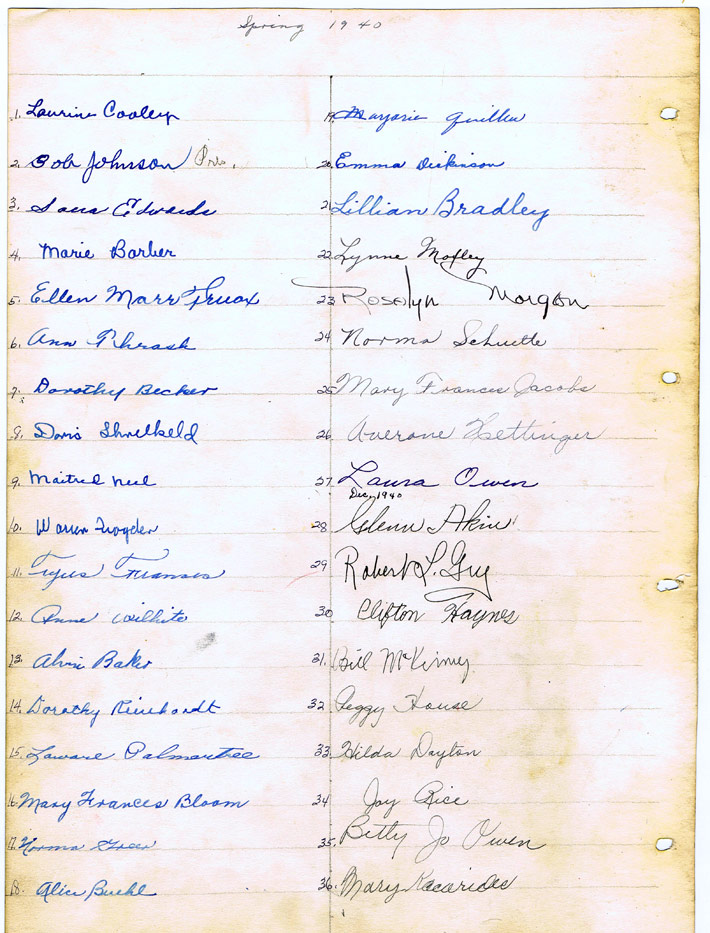 Spring 1940
1. Laurine Cooley
2. Bob Johnson Pres.
3. Sara Edwards
4. Marie Barber
5. Ellen Marr Truax
6. Ann Thrash
7. Dorothy Becker
8. Doris Threlkeld
9. Neel
10. Warren Frogder
11. Francis
12. Anne Wilhite
13. Alvin Baker
14. Dorothy Reinhardt
15. Palmertree
16. Mary Frances Bloom
17. Norma Greer
18. Alice Buehl
19. Marjorie Quillen
20. Emma Dickinson
21. Lillian Bradley
22. Lynne Mofley
23. Rosalyn Morgan
24 Norma Schuette
25. Mary Frances Jacobs
26. Averone
27. Laura Owen
Dec. 1940
28 Glenn Akin
29 Robert L. Guy
30 Clifton Haynes
31. Bill McKinney
32. Peggy House
33. Hilda Dayton
34 Joy Rice
35. Betty Jo Owen
36. Mary Kacarides